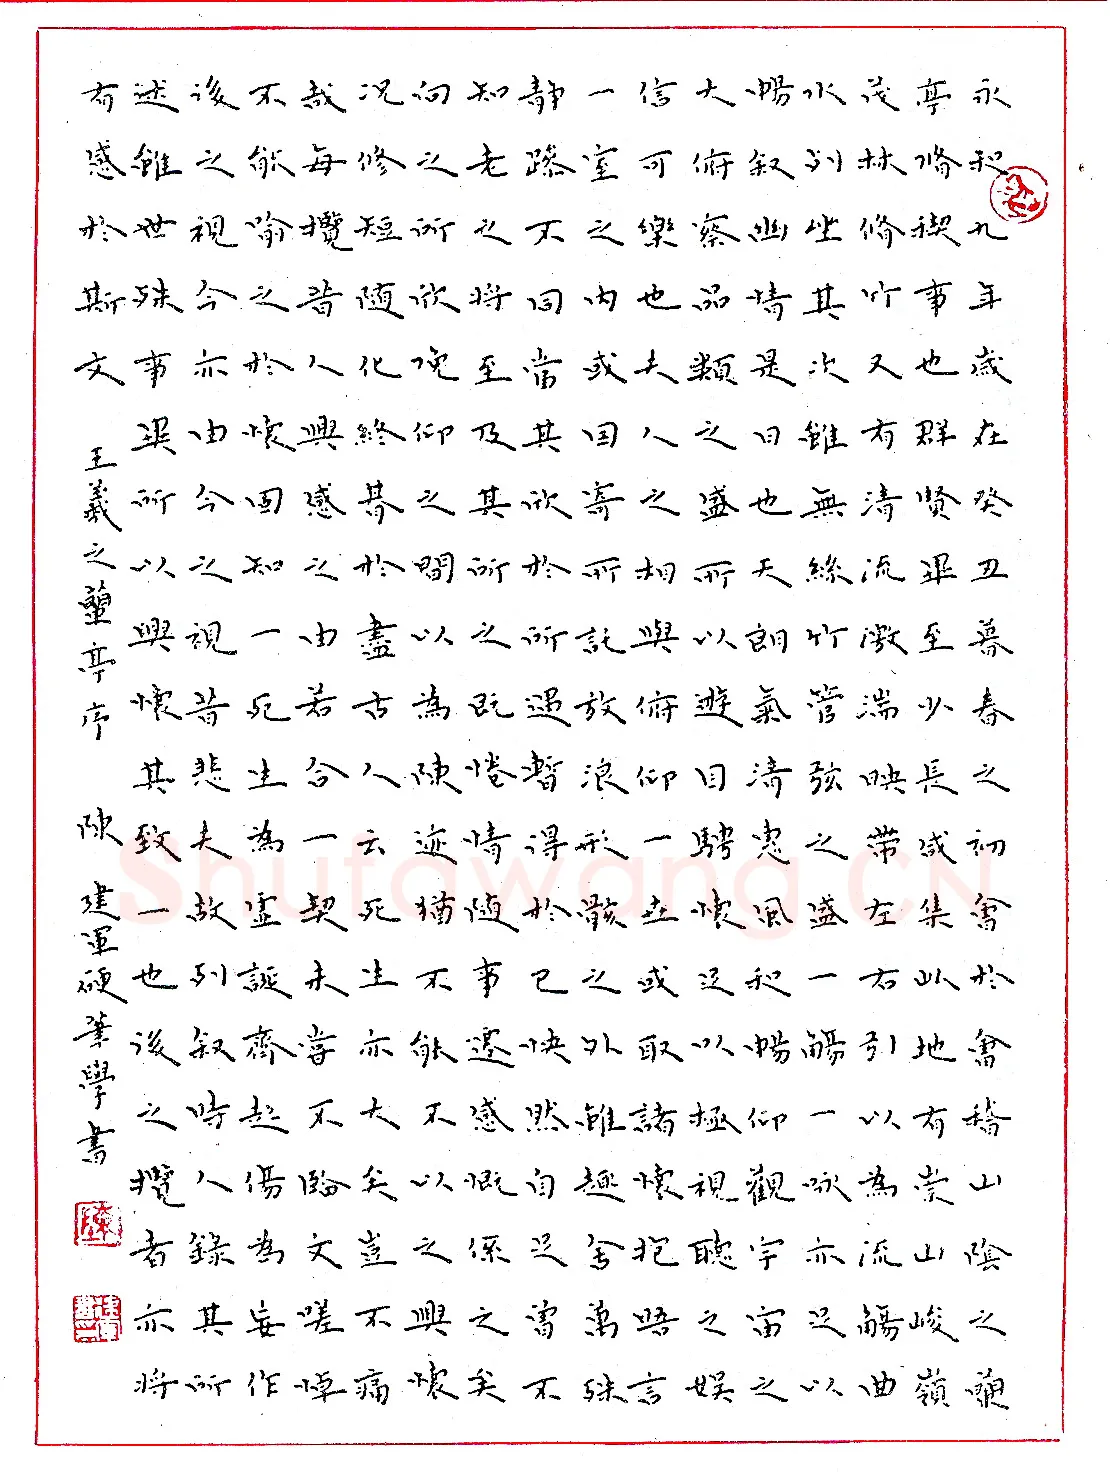 永和九年歲在癸丑暮春之初會於會稽山陰之蘭
亭脩禊事也群賢畢至少長咸集此地有崇山峻嶺
茂林脩竹又有清流激湍映帶左右引以為流觴曲
水列坐其次雖無絲竹管弦之盛一觴一詠亦足以
暢叙幽情是日也天朗氣清惠風和暢仰觀宇宙之
大俯察品類之盛所以遊目騁懷足以極視聽之娛
信可樂也夫人之相與俯仰一世或取諸懷抱晤言
一室之內或因寄所託放浪形骸之外雖趣舍萬殊
靜躁不同當其欣於所遇暫得於己快然自足曾不
知老之將至及其所之既惓情隨事遷感慨係之矣
向之所欣俛仰之間以為陳迹猶不能不以之興懷
況修短隨化終期於盡古人云死生亦大矣豈不痛
哉每攬昔人興感之由若合一契未嘗不臨文嗟悼
不能喻之於懷固知一死生為虛誕齊彭殤為妄作
後之視今亦由今之視昔悲夫故列叙時人錄其所
述雖世殊事異所以興懷其致一也後之攬者亦將
有感於斯文 王羲之蘭亭序 陳建軍硬筆學書
Shufawang.CN